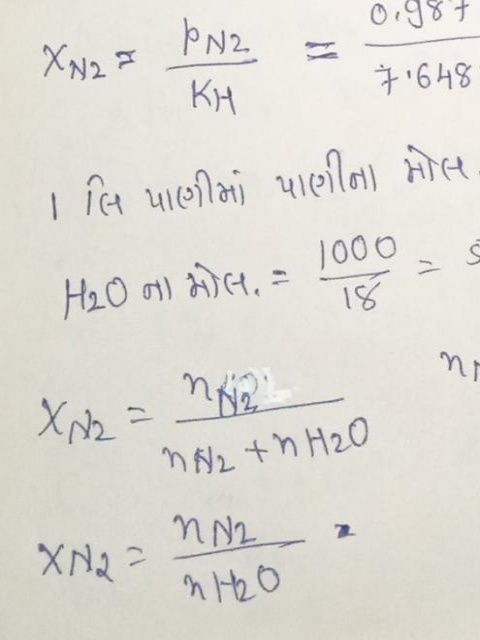 XN2 = pN2 / KH = 0.987 / 7.648
1 લિ પાણીમાં પાણીના મોલ
H2O ના મોલ. = 1000 / 18 =
XN2 = nN2 / nN2 + nH2O
XN2 = nN2 / nH2O